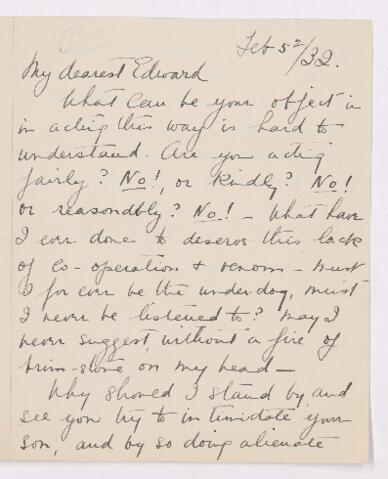 Feb 5th/32.
My dearest Edward
What can be your object in
in acting this way is hard to
understand. Are you acting
fairly? No!, or kindly? No!
or reasonably? No! - What have
I ever done to deserve this lack
of co-operation & venom - must
I for ever be the underdog, must
I never be listened to? May I
never suggest, without a fire of
brim-stone on my head -
Why should I stand by and
see you try to intimidate your
son, and by so doing alienate